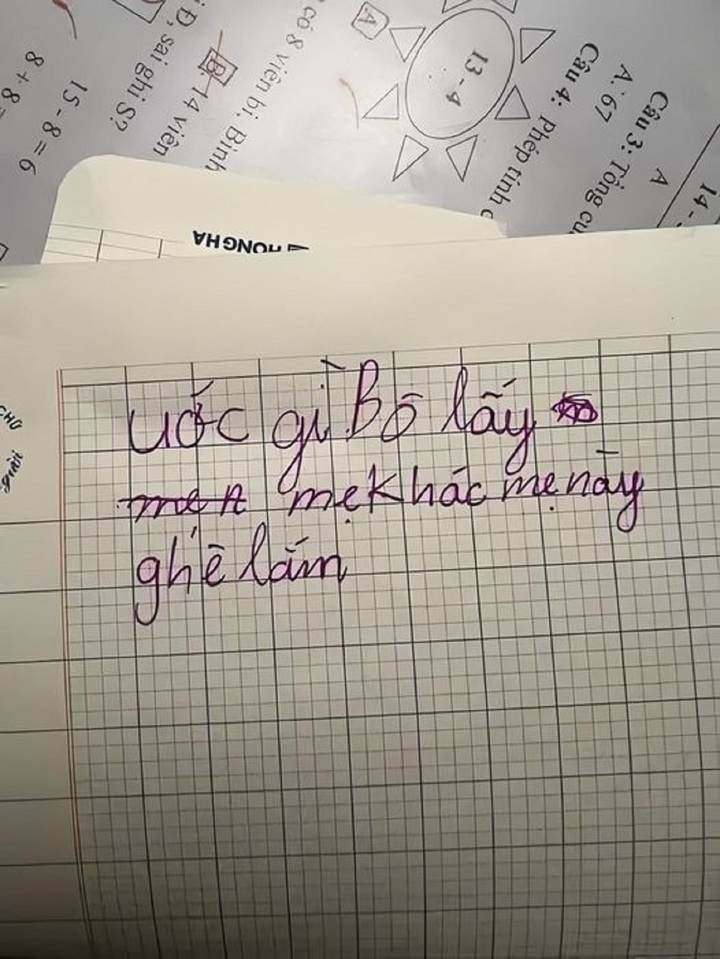 Ước gì Bố lấy
mẹ khác mẹ này
ghê lắm
HONG HA
13 - 4
A
Câu 3: Tổng củ
A. 67
Câu 4: Phép tính c
14 -
A
có 8 viên bi, Bình
B. 14 viên
Đ, sai ghi S?
15 - 8 = 6
8 + 8 =